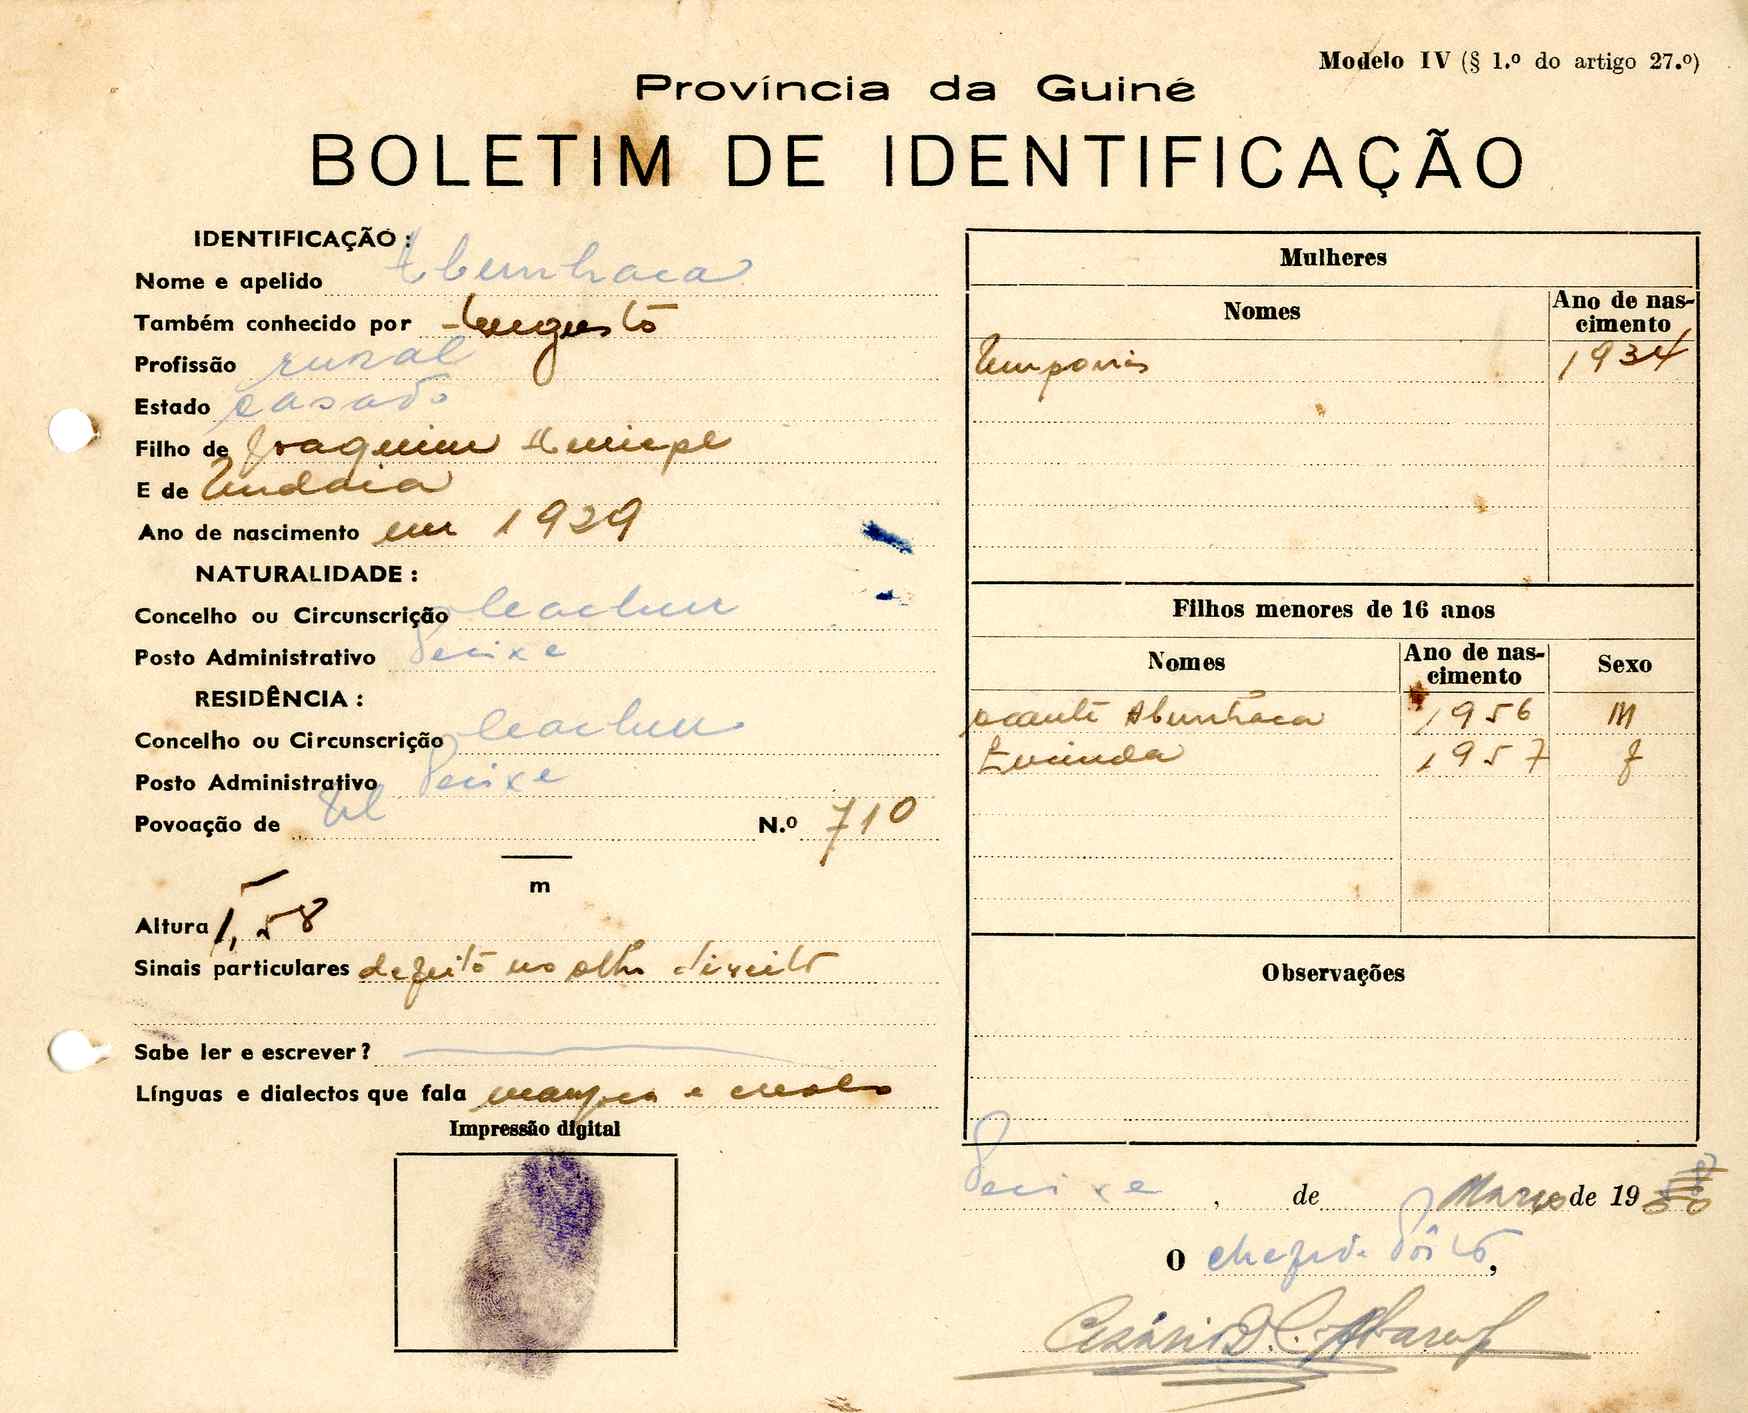 Modelo IV (§ 1.º do artigo 27.º)
Província da Guiné
BOLETIM DE IDENTIFICAÇÃO
IDENTIFICAÇÃO :
Nome e apelido Abunhaca
Também conhecido por Augusto
Profissão rural
Estado casado
Filho de Joaquim
E de
Ano de nascimento em 1929
NATURALIDADE :
Concelho ou Circunscrição Cacheu
Posto Administrativo Pecixe
RESIDÊNCIA :
Concelho ou Circunscrição Cacheu
Posto Administrativo Pecixe
Povoação de
N.º 710
m
Altura 1,58
Sinais particulares defeito no olho direito
Sabe ler e escrever?
Línguas e dialectos que fala e creolo
Impressão digital
Mulheres
Nomes
Ano de nascimento
1934
Filhos menores de 16 anos
Nomes
Ano de nascimento
Sexo
Abunhaca 1956 M
1957 f
Observações
Pecixe, de Março de 19
O chefe de Pôsto,